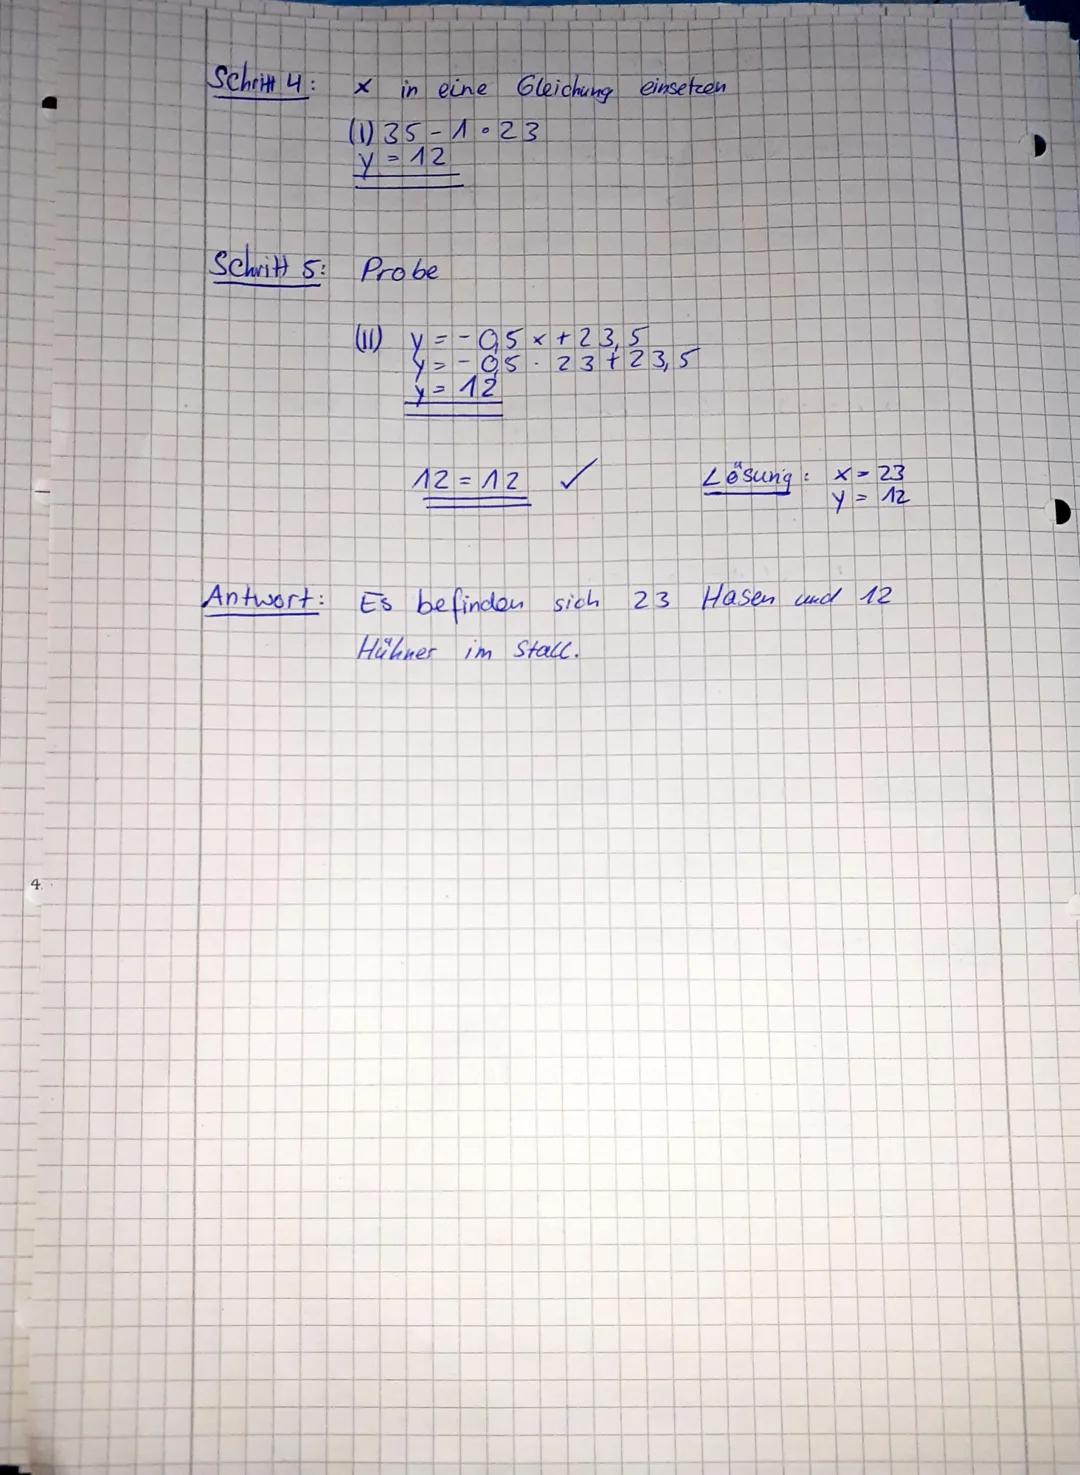 Schritt 4: x in eine Gleichung einsetzen
(I) 35 - 1 · 23
y = 12
Schritt 5: Probe
(II) y = - 0,5 x + 23,5
y = - 0,5 · 23 + 23,5
y = 12
12 = 12 ✓
Lösung: x = 23
y = 12
Antwort: Es befinden sich 23 Hasen und 12
Hühner im Stall.
4.